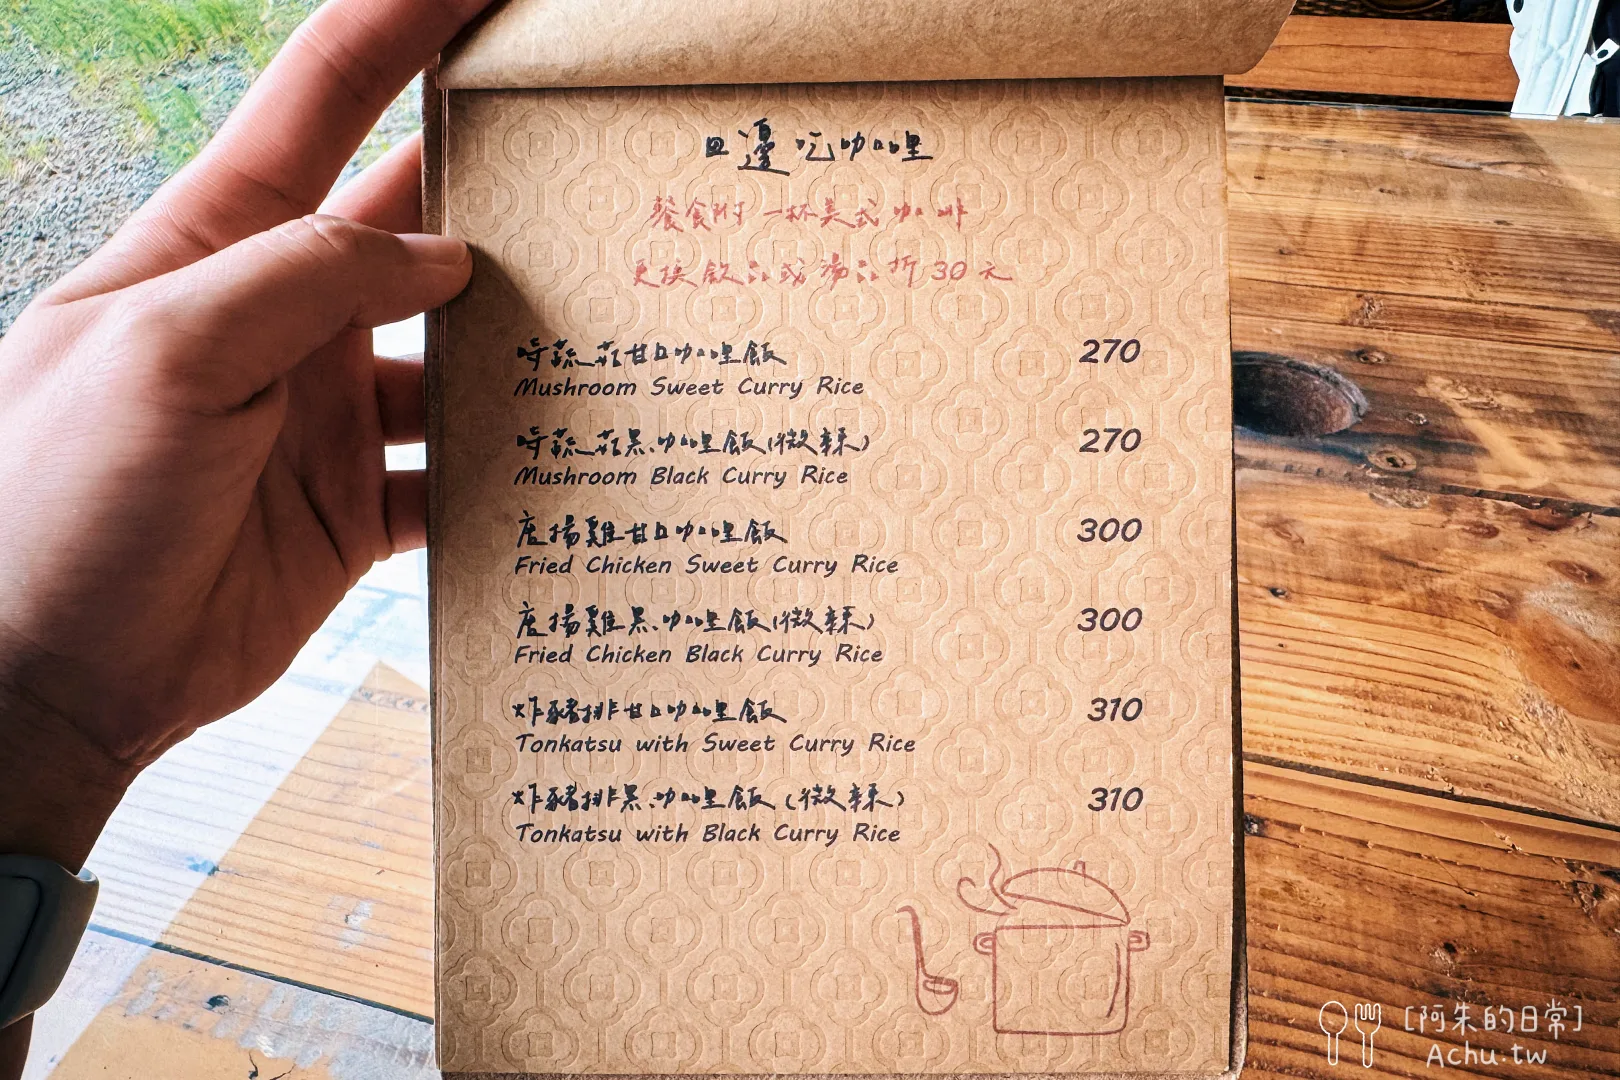 田邊吃咖哩
餐食附一杯美式咖啡
更換飲品或湯品折30元
時蔬菇甘口咖哩飯 270
Mushroom Sweet Curry Rice
時蔬菇黑咖哩飯(微辣) 270
Mushroom Black Curry Rice
唐揚雞甘口咖哩飯 300
Fried Chicken Sweet Curry Rice
唐揚雞黑咖哩飯(微辣) 300
Fried Chicken Black Curry Rice
炸豬排甘口咖哩飯 310
Tonkatsu with Sweet Curry Rice
炸豬排黑咖哩飯(微辣) 310
Tonkatsu with Black Curry Rice
[阿朱的日常]
Achu.tw